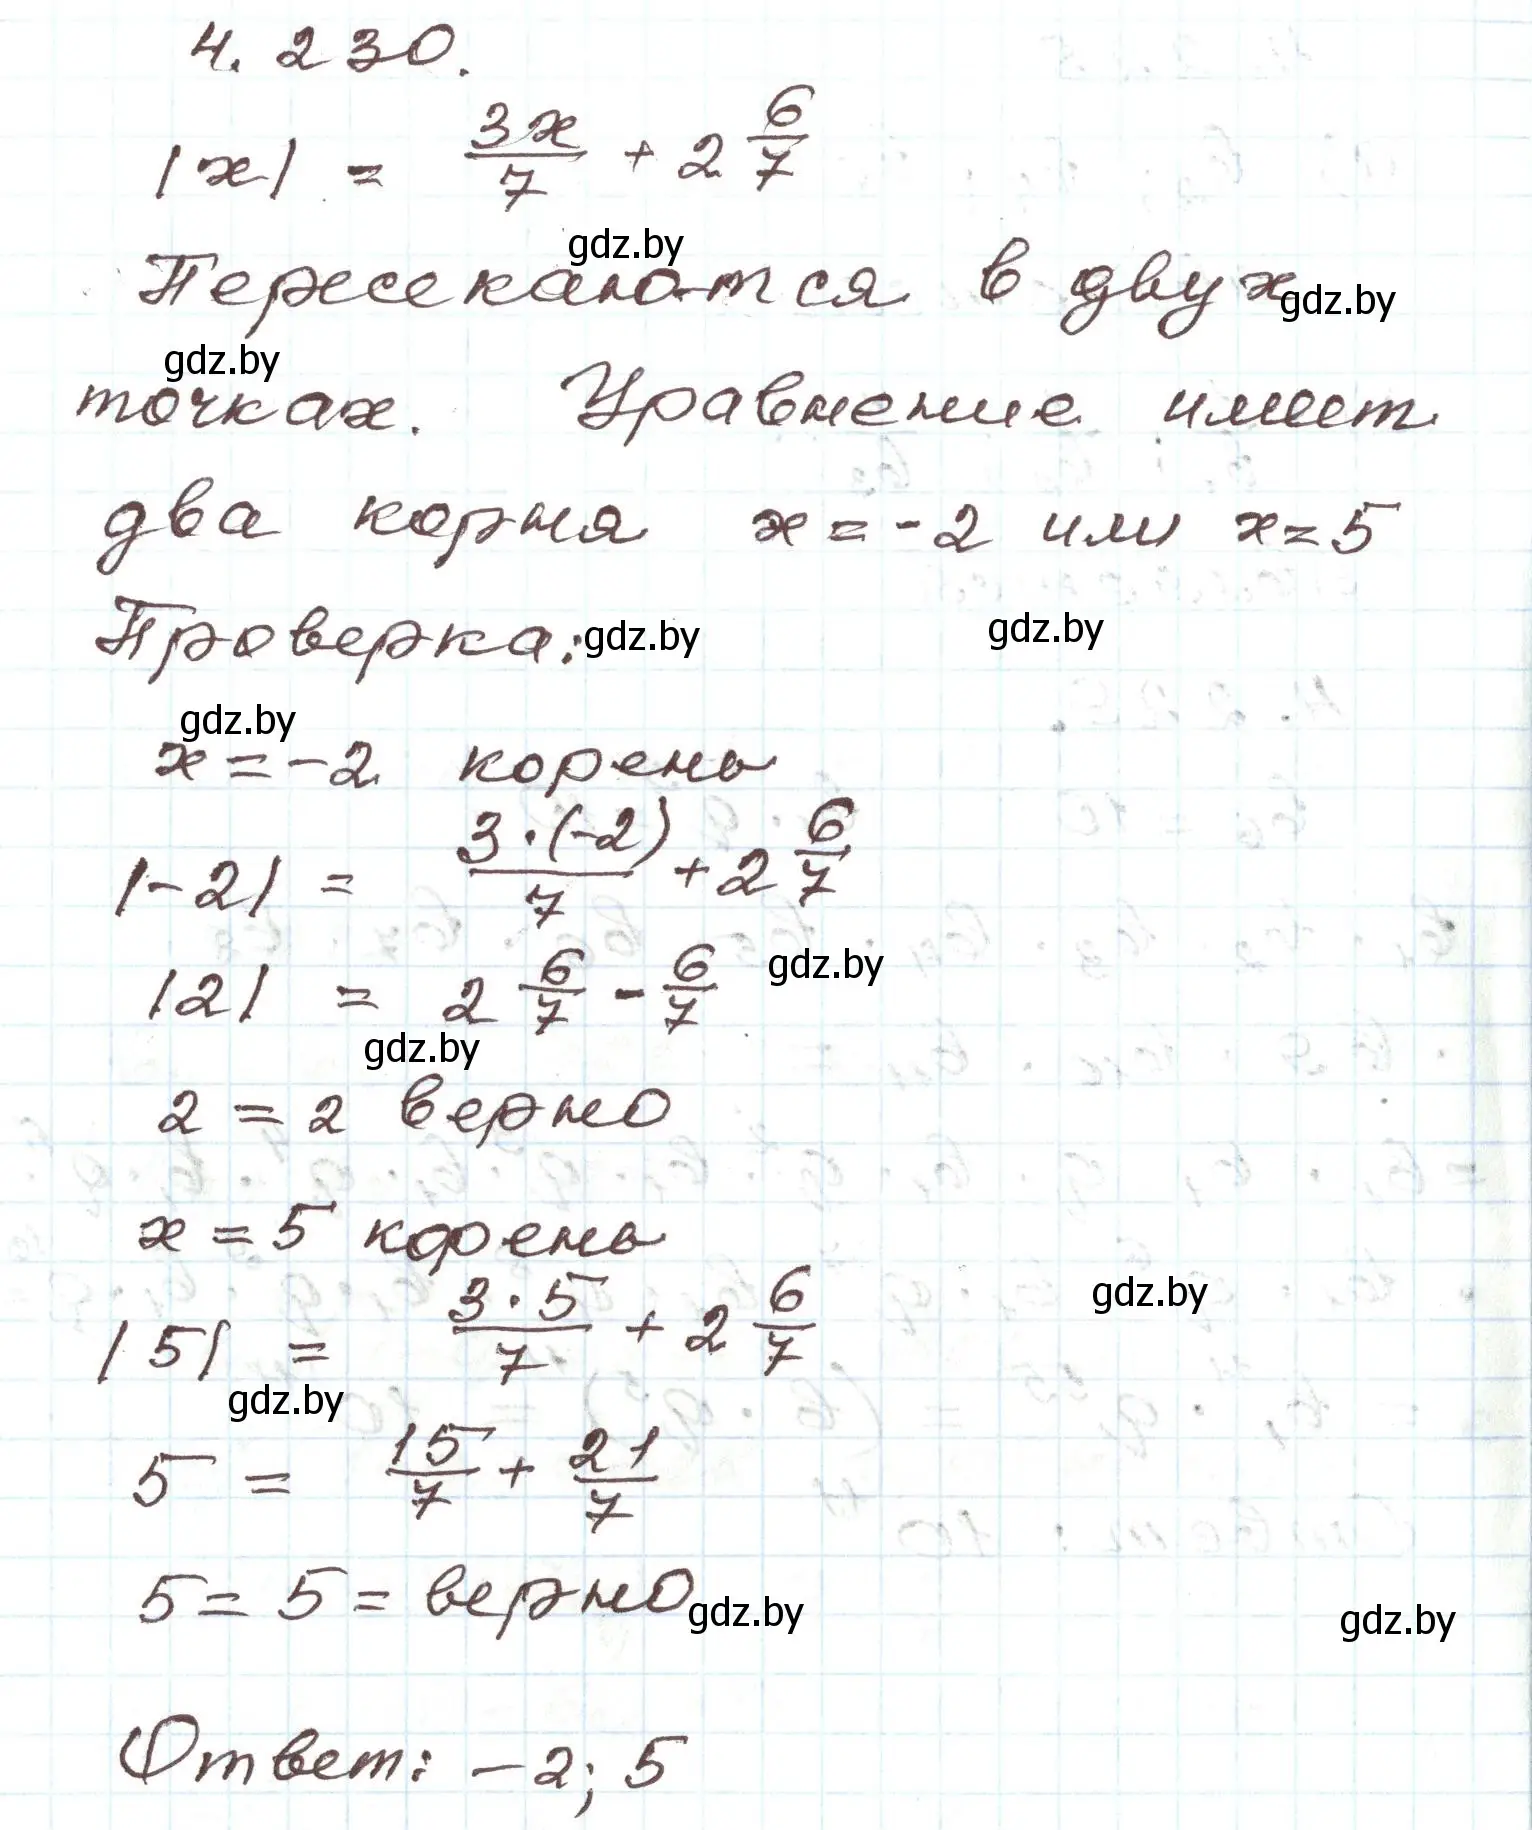 4.230.
|x| = 3x/7 + 2 6/7
gdz.by
Пересекаются в двух
gdz.by
gdz.by
точках. Уравнение имеет
два корня x = -2 или x = 5
Проверка:
gdz.by
gdz.by
gdz.by
x = -2 корень
|-2| = 3·(-2)/7 + 2 6/7
|2| = 2 6/7 - 6/7
gdz.by
gdz.by
2 = 2 верно
x = 5 корень
|5| = 3·5/7 + 2 6/7
gdz.by
gdz.by
5 = 15/7 + 21/7
5 = 5 = верно
gdz.by
gdz.by
Ответ: -2; 5